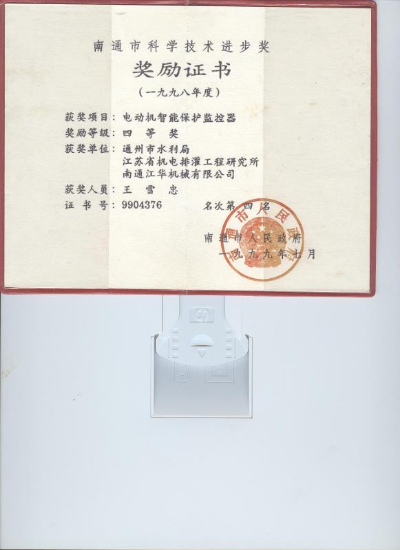 南通市科学技术进步奖
奖励证书
(一九九八年度)
获奖项目：电动机智能保护监控器
奖励等级：四等奖
获奖单位：通州市水利局
江苏省机电排灌工程研究所
南通江华机械有限公司
获奖人员：王雪忠
证书号：9904376 名次第四名
南通市人民政府
一九九九年七月
南通市人民政府